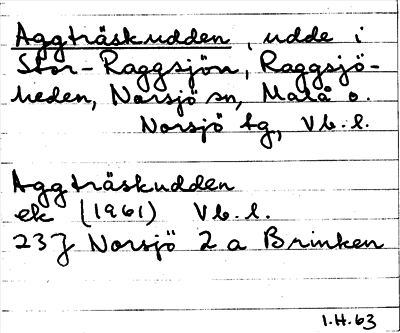 Aggträskudden, udde i
Stor-Raggsjön, Raggsjö-
heden, Norsjö sn, Malå o.
Norsjö tg, Vb.l.
Aggträskudden
ek (1961) Vb.l.
23J Norsjö 2 a Brinken
I.H.63